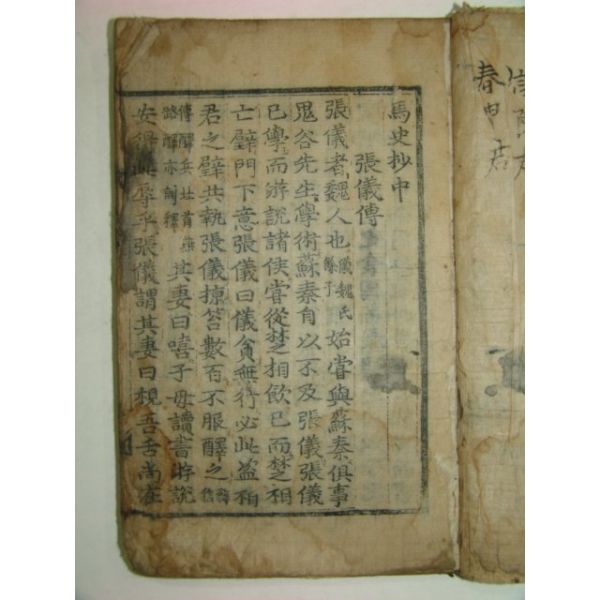 馬史抄中
張儀傳
張儀者魏人也儀魏氏餘子始嘗與蘇秦俱事
鬼谷先生學術蘇秦自以不及張儀張儀
已學而游說諸侯嘗從楚相飮已而楚相
亡璧門下意張儀曰儀貧無行必此盜相
君之璧共執張儀掠笞數百不服醳之
其妻曰嘻子毋讀書游說
安得此辱乎張儀謂其妻曰視吾舌尙在
春申君